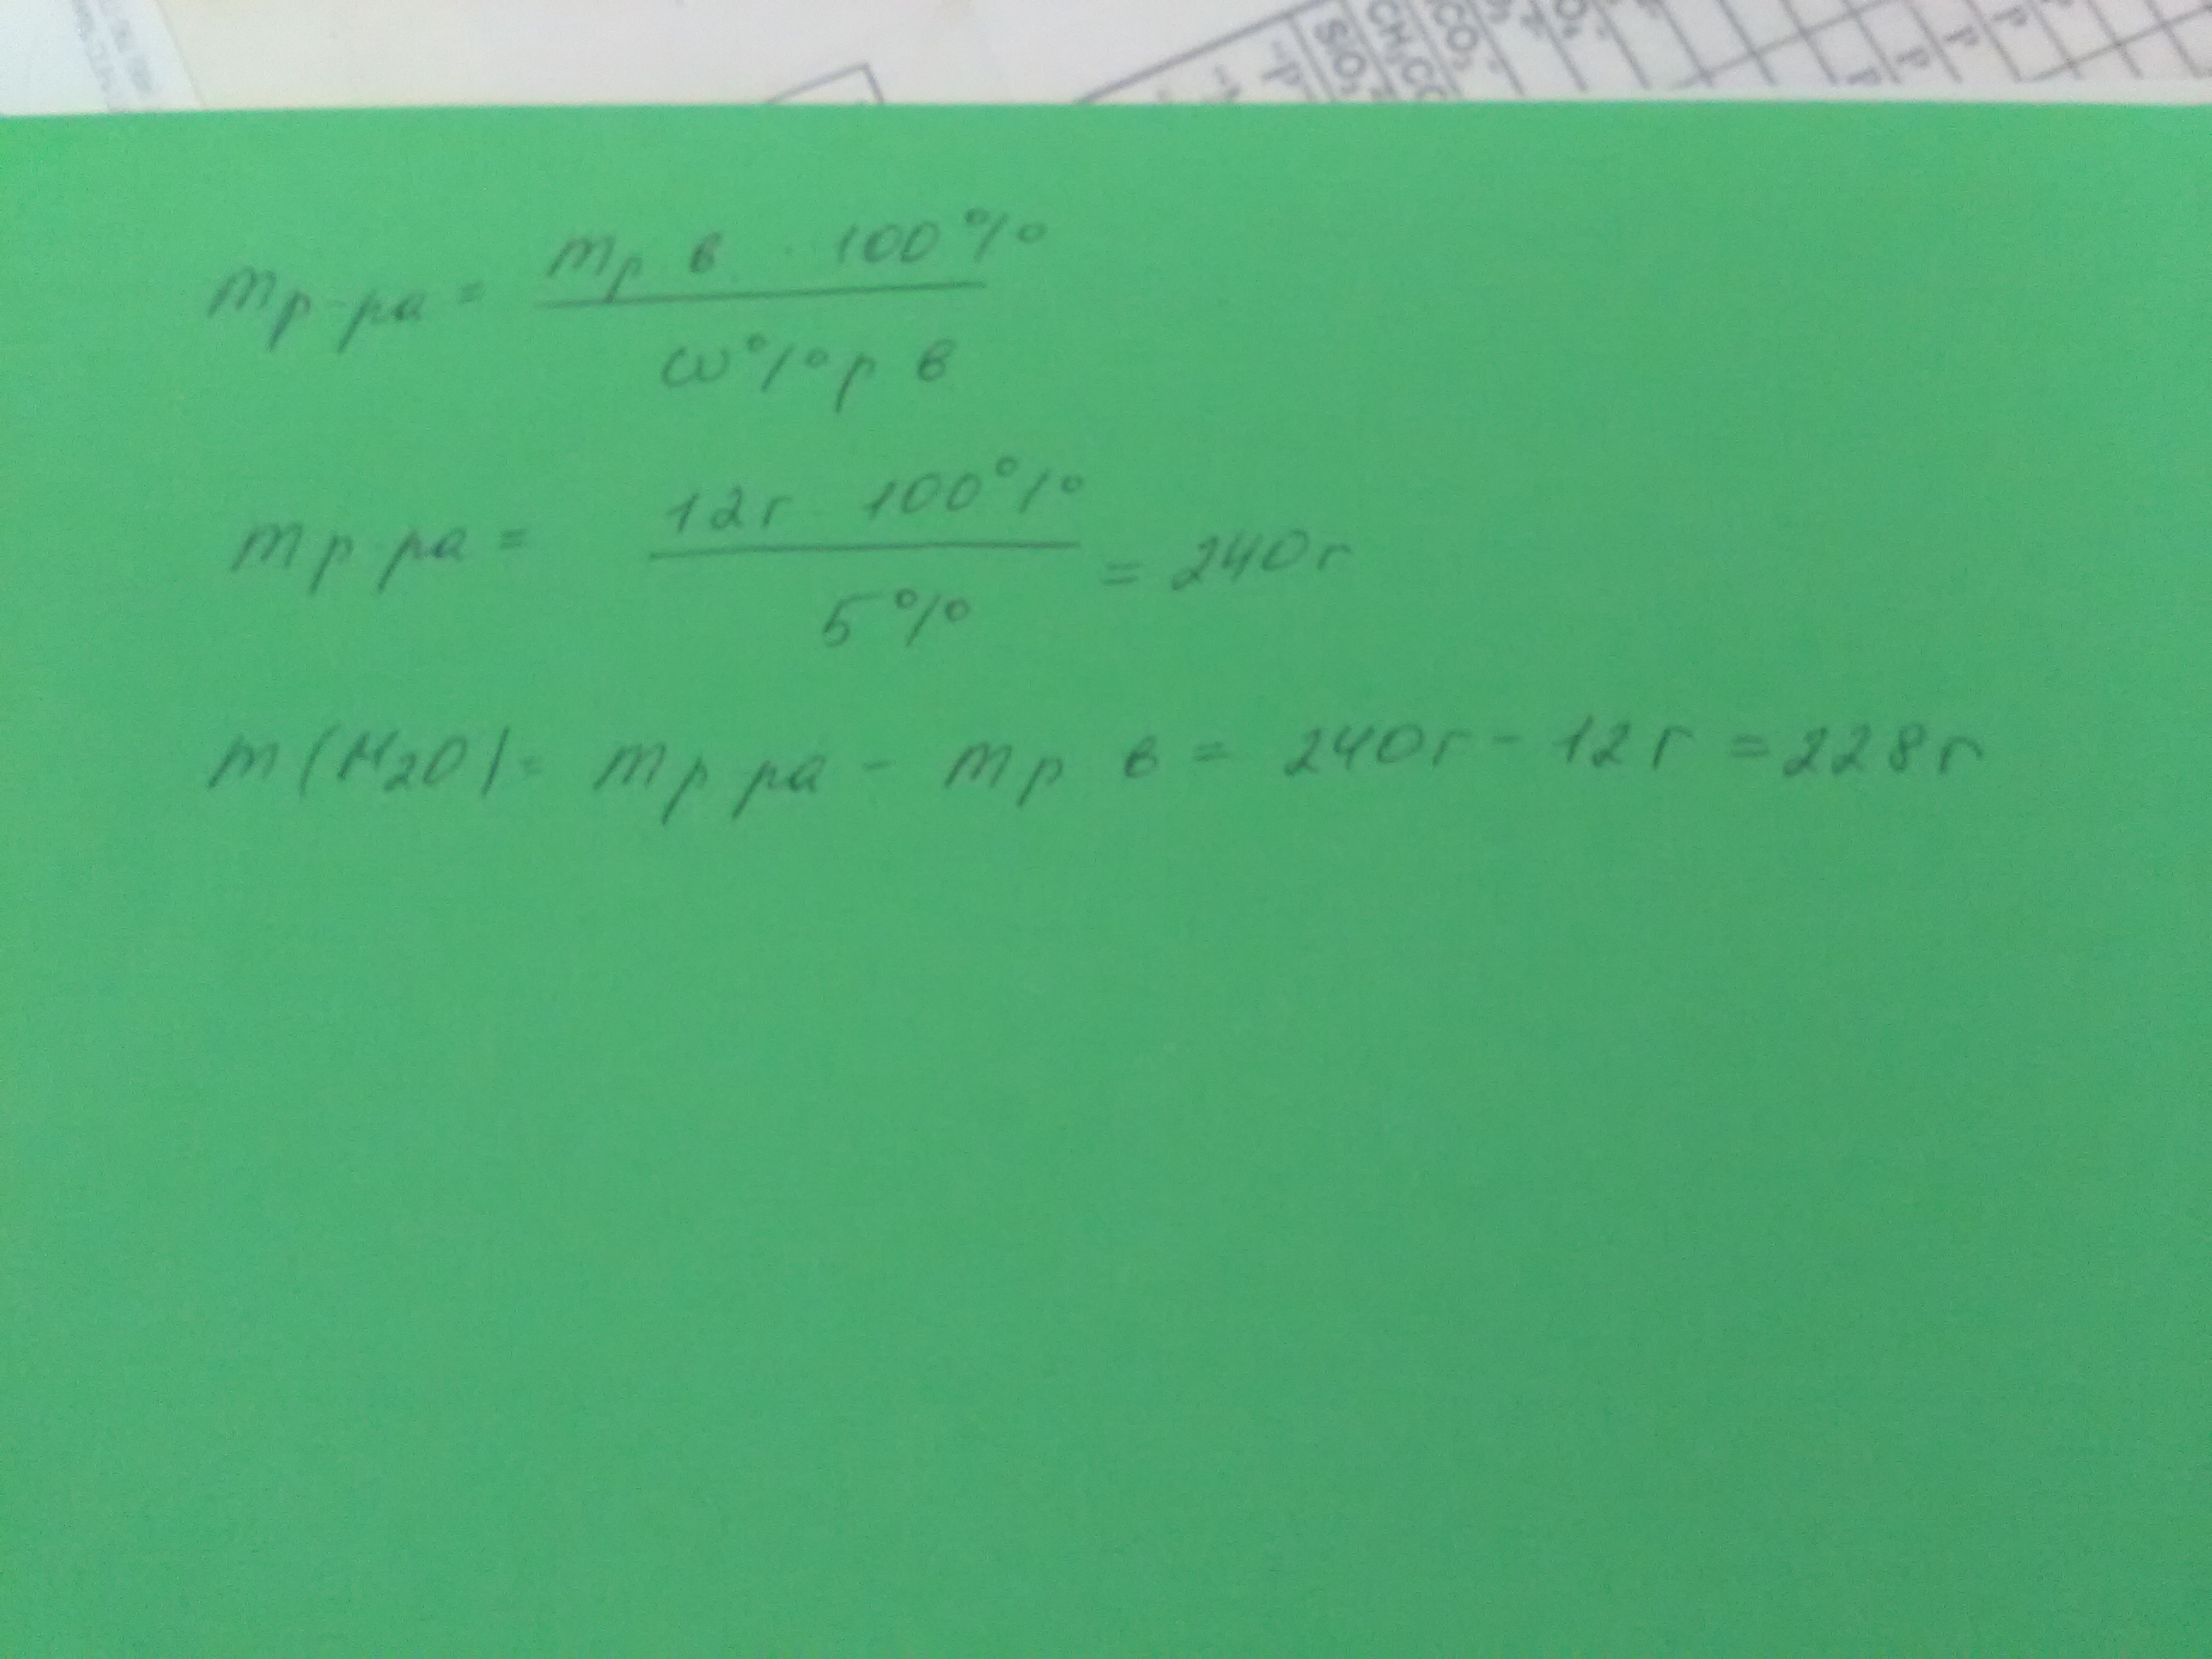 SiO₃
CH₃CO
CO₃
P
P
P
P
mр-ра = mр в · 100% / ω% р в
mр ра = 12г · 100% / 5% = 240г
m(H₂O) = mр ра - mр в = 240г - 12г = 228г